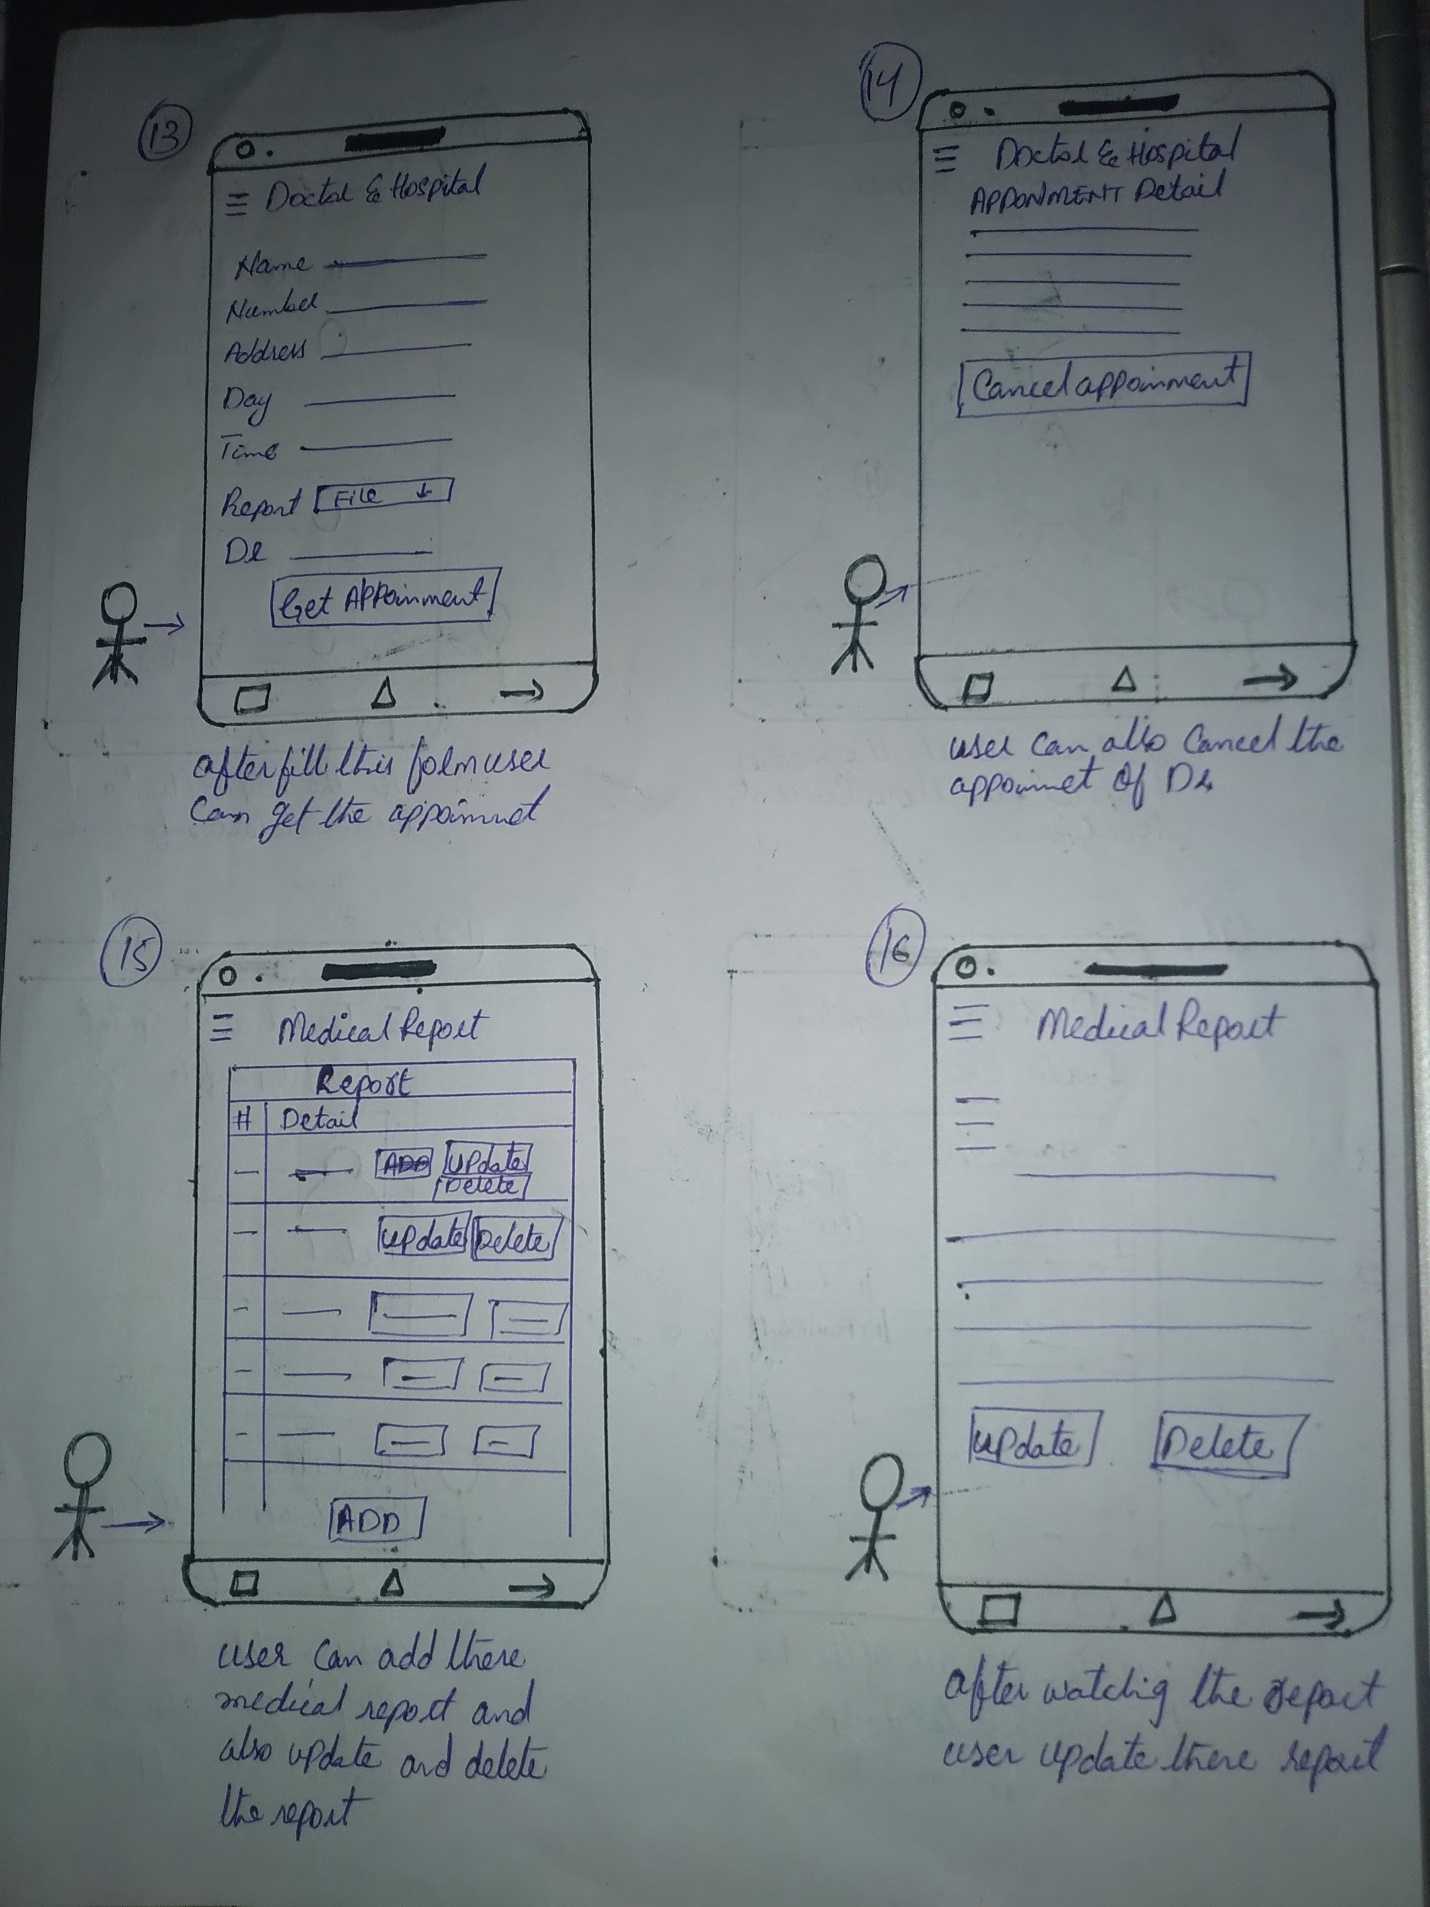 13
Doctor & Hospital
Name
Number
Address
Day
Time
Report File
Dr
Get APPoinment
after fill this form user
can get the appoimnet
14
Doctor & Hospital
APPONMENT Detail
Cancel appoinment
user can also cancel the
appoimnet of Dr
15
Medical Report
Report
# Detail
ADD Update
Delete
Update Delete
ADD
user can add there
medical report and
also update and delete
the report
16
Medical Report
Update Delete
after watching the report
user update there report